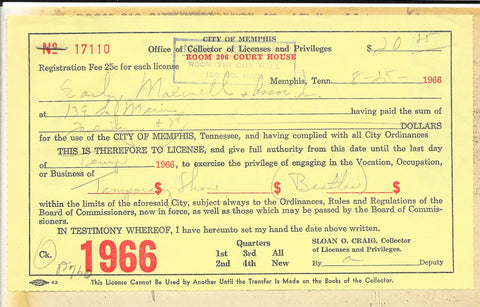 CITY OF MEMPHIS
No 17110 Office of Collector of Licenses and Privileges $ 20 25
ROOM 206 COURT HOUSE
Registration Fee 25c for each license
ROOM 210 CITY HALL
Memphis, Tenn. 8-25- 1966
Early Maxwell & Assoc
at 139 So Main having paid the sum of
DOLLARS
for the use of the CITY OF MEMPHIS, Tennessee, and having complied with all City Ordinances
THIS IS THEREFORE TO LICENSE, and give full authority from this date until the last day
of Temp 1966, to exercise the privilege of engaging in the Vocation, Occupation,
or Business of
Temporary $ Show $ (Beatles) $
within the limits of the aforesaid City, subject always to the Ordinances, Rules and Regulations of the
Board of Commissioners, now in force, as well as those which may be passed by the Board of Commis-
sioners.
IN TESTIMONY WHEREOF, I have hereunto set my hand the date above written.
Quarters
SLOAN O. CRAIG, Collector
of Licenses and Privileges.
Ck. 1966
1st 3rd All
2nd 4th New
By
This License Cannot Be Used by Another Until the Transfer Is Made on the Books of the Collector.